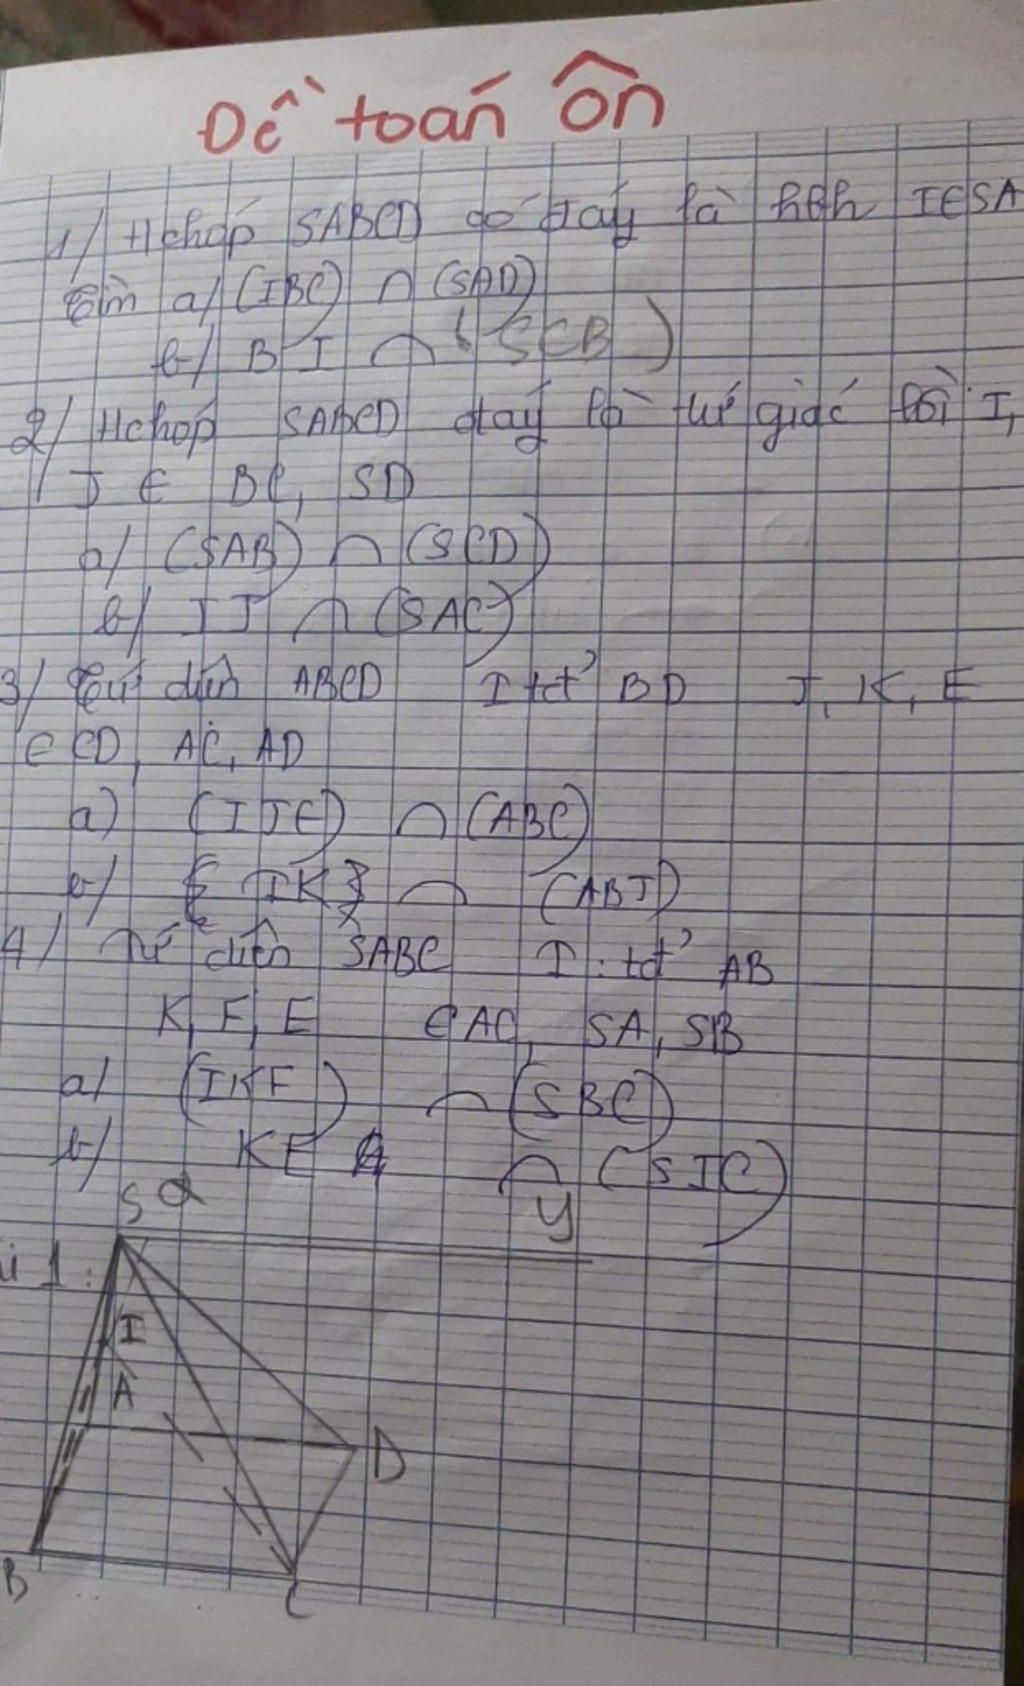 Đề toán ôn
1/ Hchóp SABCD có đáy là hbh I∈SA
Tìm a/ (IBC) ∩ (SAD)
b/ BI ∩ (SCB)
2/ Hchóp SABCD đáy là tứ giác lồi I,
J ∈ BC, SD
a/ (SAB) ∩ (SCD)
b/ IJ ∩ (SAC)
3/ Tứ diện ABCD I tđ BD J, K, E
∈ CD, AC, AD
a) (IJE) ∩ (ABC)
b/ { IK } ∩ (ABJ)
4/ Tứ diện SABC I : tđ AB
K, F, E ∈ AC, SA, SB
a/ (IKF) ∩ (SBC)
b/ KE ∩ (SIC)
S y
1:
I
A
D
B
C